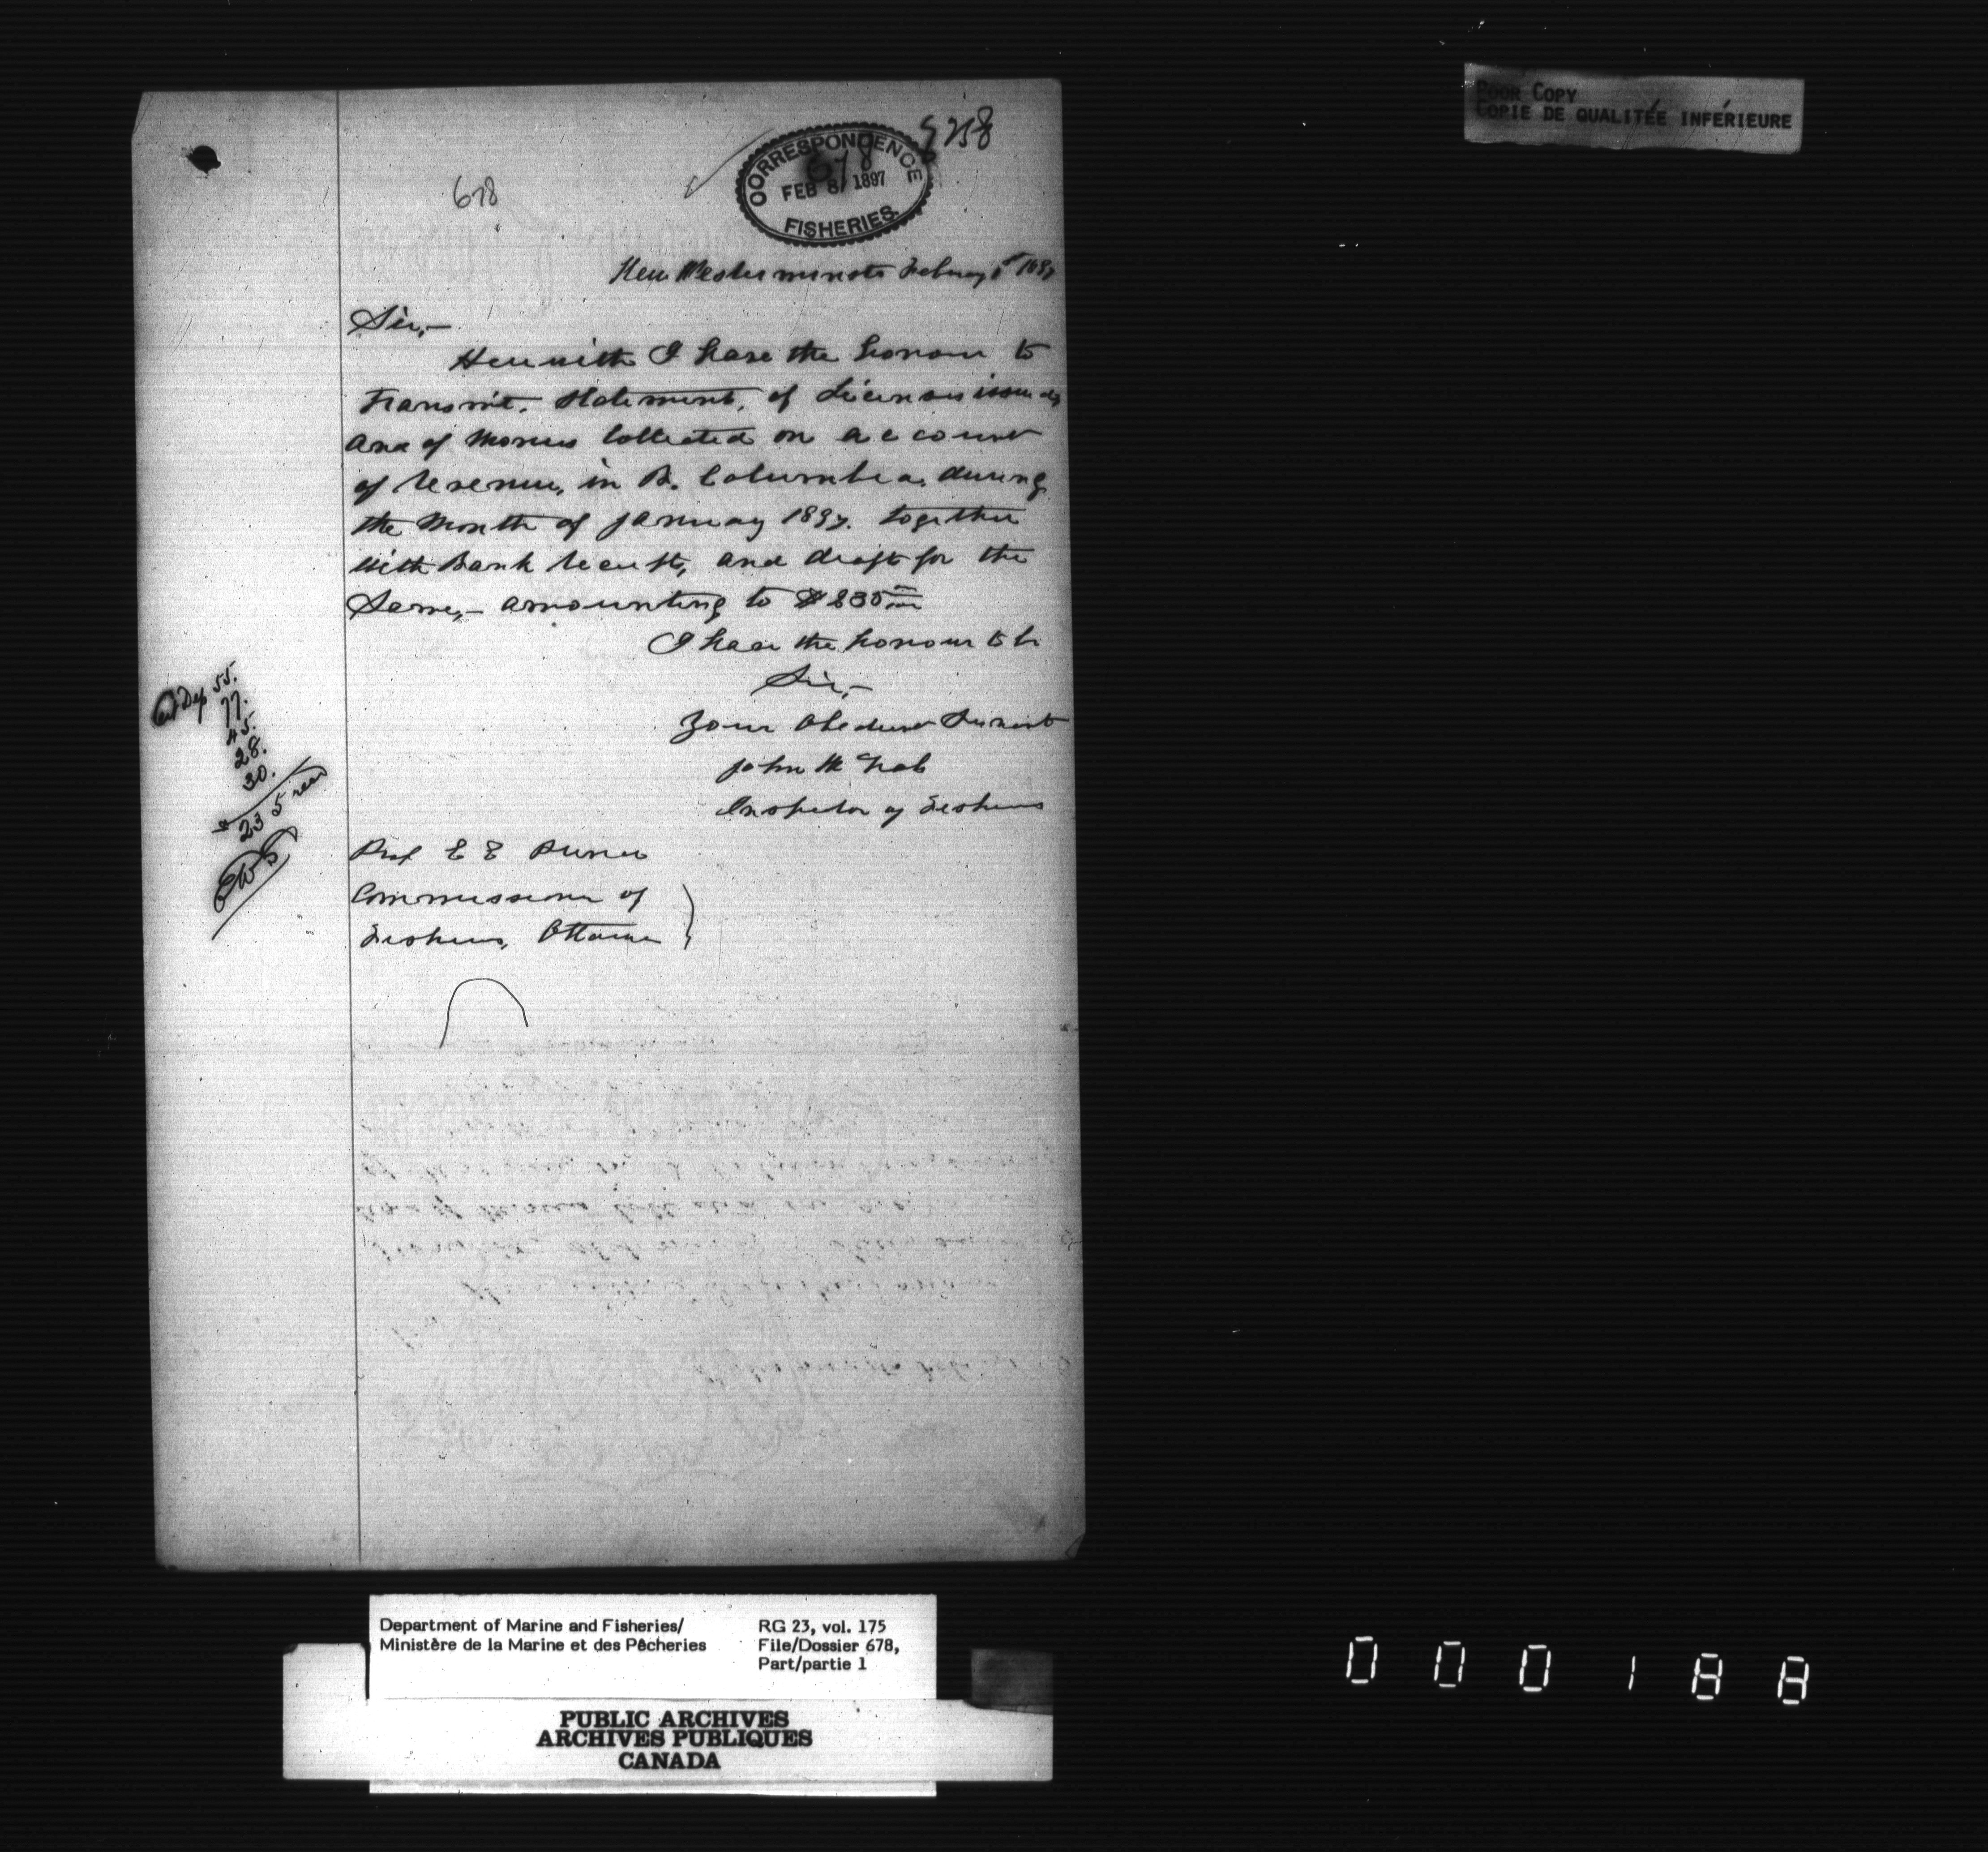 POOR COPY
COPIE DE QUALITÉE INFÉRIEURE
5258
CORRESPONDENCE
678
FEB 8 1897
FISHERIES
678
New Westminster February 1st 1897
Sir,-
Herewith I have the honour to
Transmit, Statement, of Licenses issued,
and of Monies Collected on account
of revenue, in B. Columbia, during
the Month of January 1897. together
with Bank receipts, and draft for the
Same,- amounting to $235
I have the honour to be
Sir,-
Your Obedient Servant
John McNab
Inspector of Fisheries
Dep 55.
77.
45.
28.
30.
235
Prof E E Prince
Commissioner of
Fisheries, Ottawa
Department of Marine and Fisheries/
Ministère de la Marine et des Pêcheries
RG 23, vol. 175
File/Dossier 678,
Part/partie 1
PUBLIC ARCHIVES
ARCHIVES PUBLIQUES
CANADA
000188